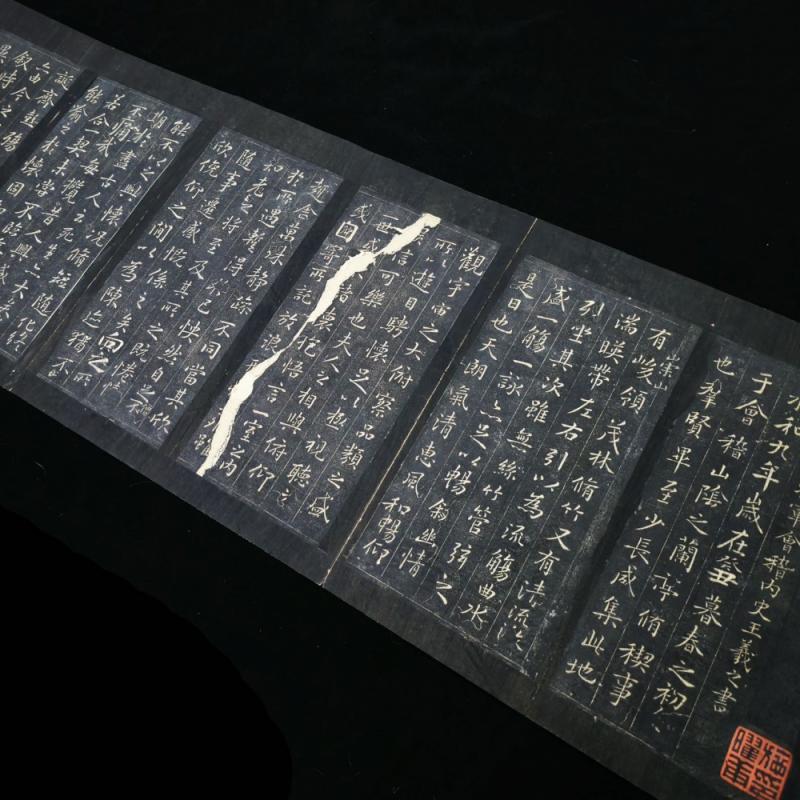 軍會稽內史王羲之書
和九年歲在癸丑暮春之初
于會稽山陰之蘭亭脩稧事
也群賢畢至少長咸集此地
有崇山
有峻領茂林脩竹又有清流激
湍暎帶左右引以為流觴曲水
列坐其次雖無絲竹管弦之
盛一觴一詠亦足以暢叙幽情
是日也天朗氣清惠風和暢仰
觀宇宙之大俯察品類之盛
所以遊目騁懷足以極視聽之
信可樂也夫人之相與俯仰
一世或諸懷抱悟言一室之內
或因寄所託放浪
趣舍萬殊靜躁不同當其欣
於所遇蹔得於己怏然自足不
知老之將至及其所之既惓情
隨事遷感慨係之矣向之所
欣俛仰之間以為陳迹猶不
能不以之興懷況脩短隨化
期於盡古人云死生亦大
不痛哉每攬昔人興感
若合一契未嘗不臨文
能喻之於懷固
誕齊彭殤
亦由今